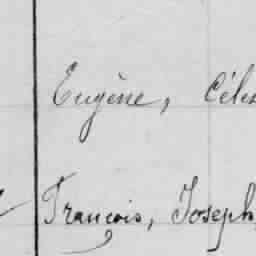 Eugène,
François, Joseph